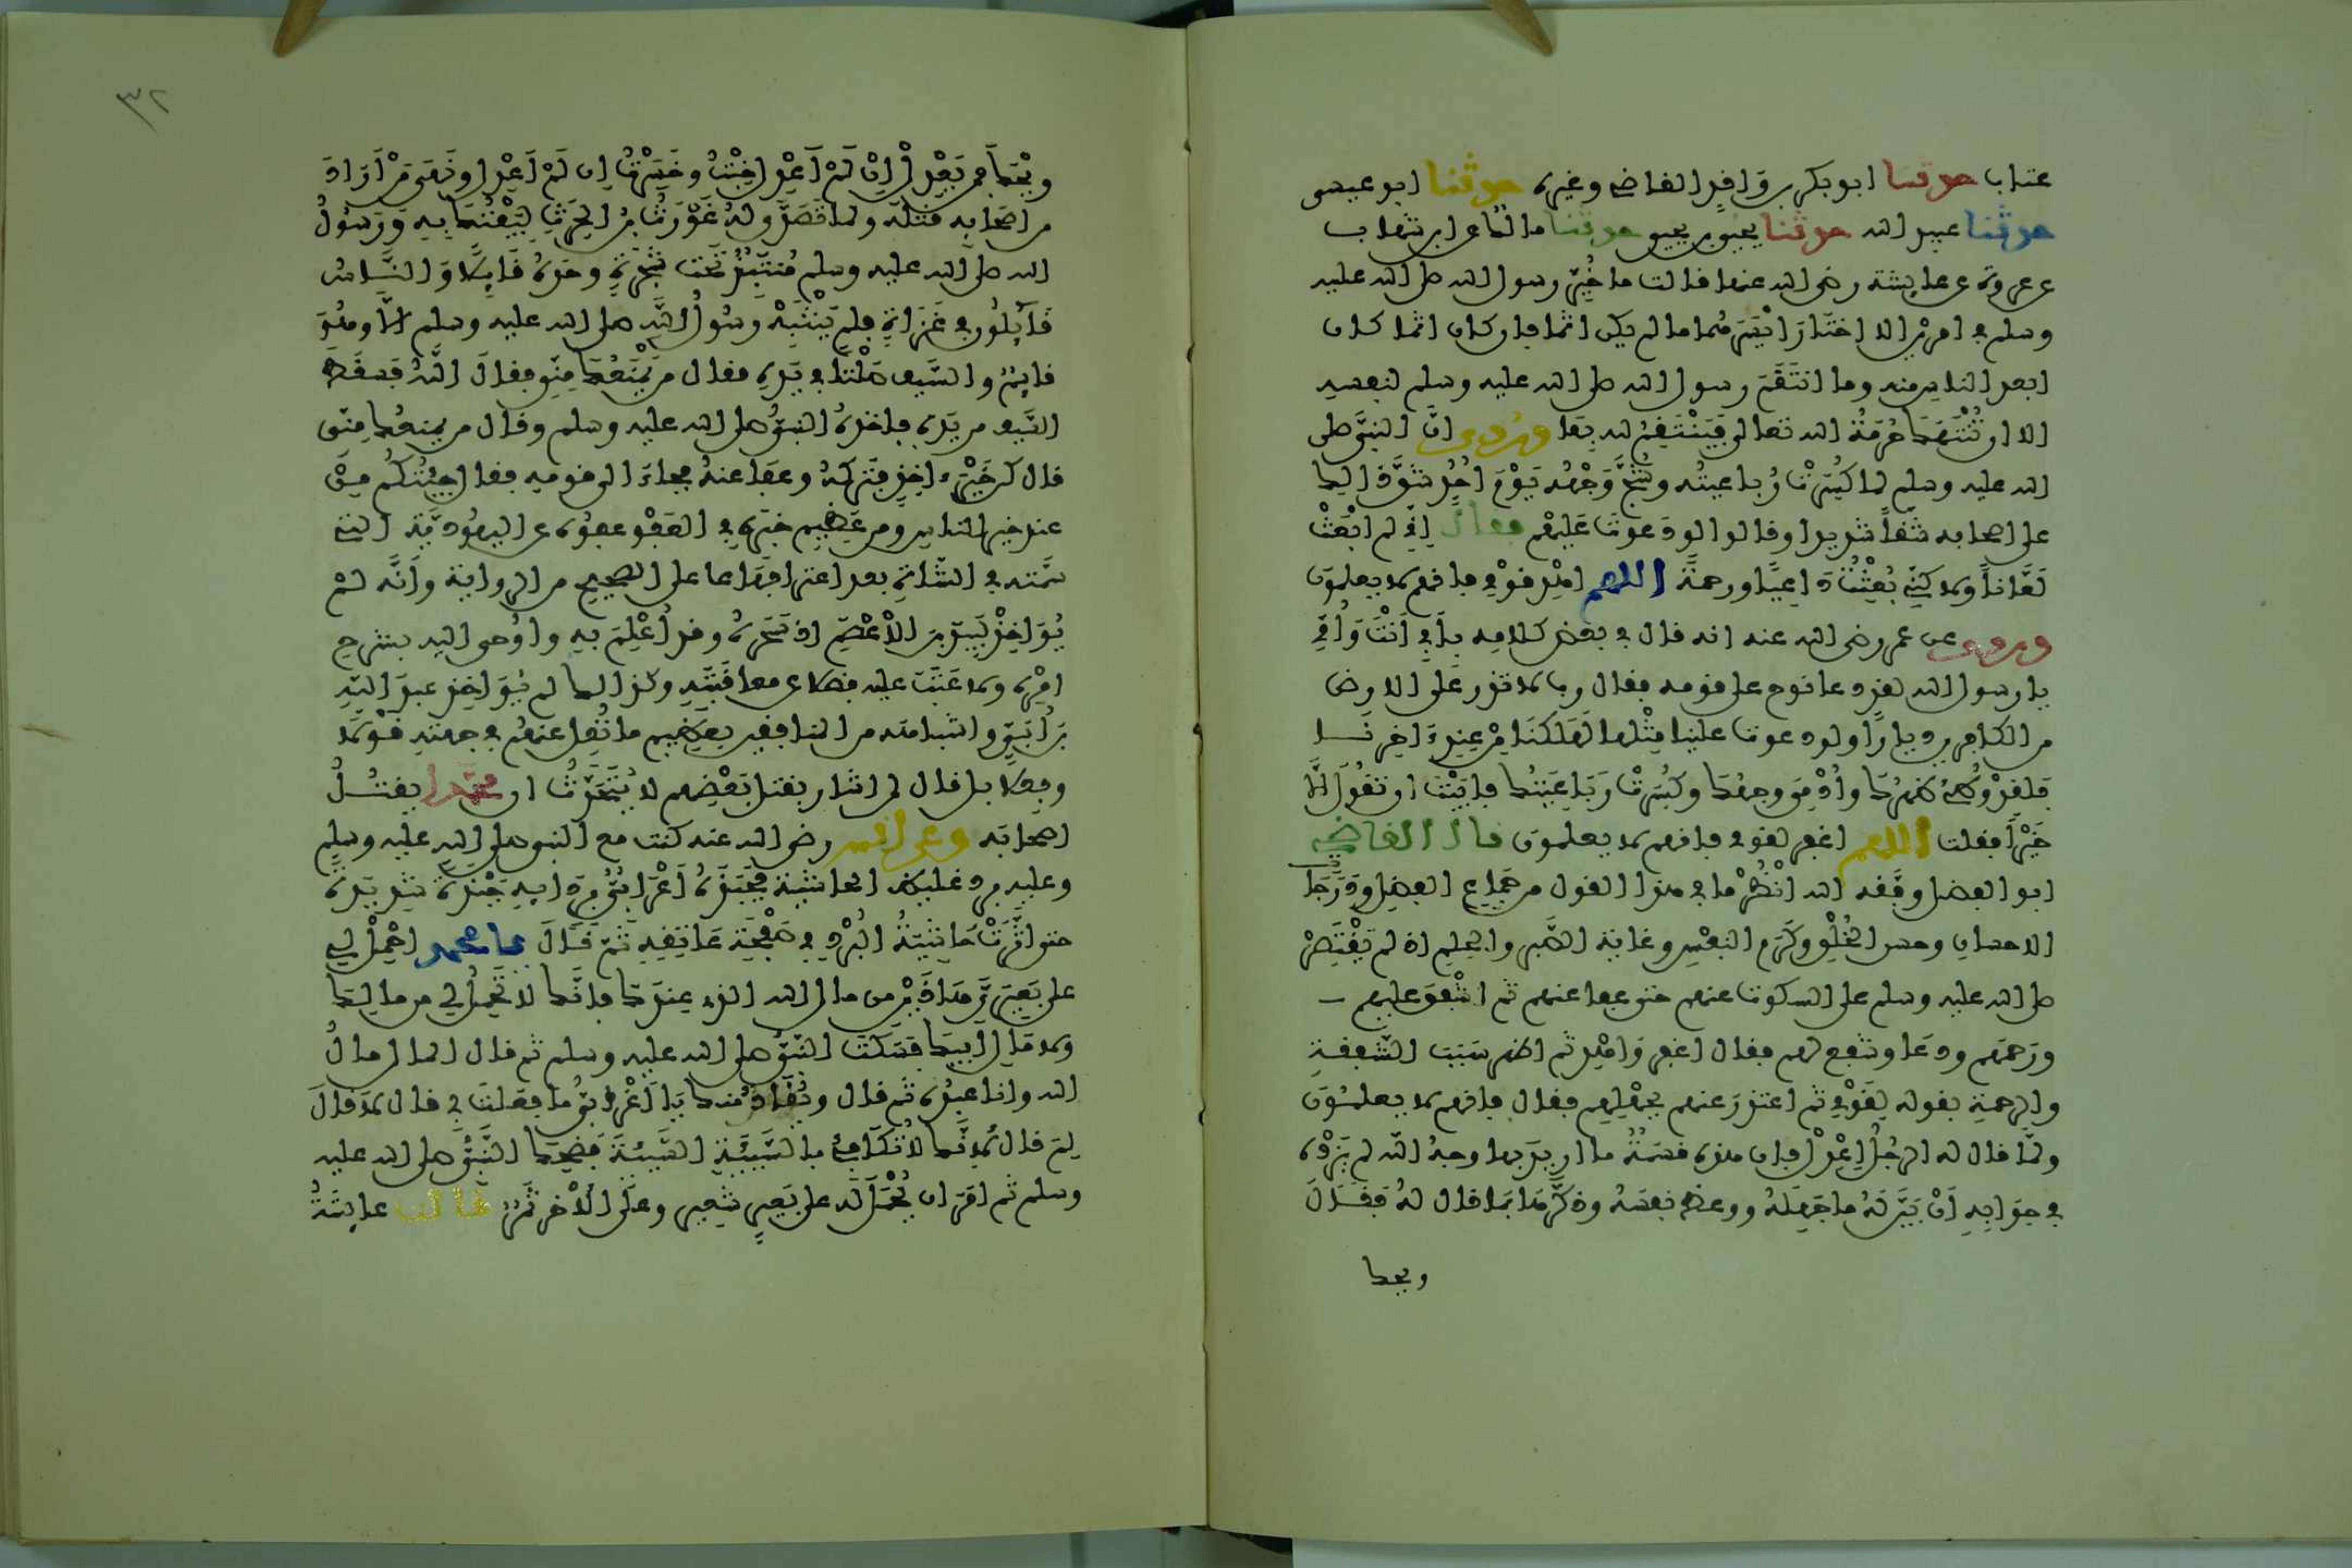 عتاب حدثنا ابو بكر بن وافد القاضي وغيره حدثنا ابو عيسى
حدثنا عبيد الله حدثنا يحيى بن يحيى حدثنا مالك عن ابن شهاب
عن عروة عن عايشة رضى الله عنها قالت ما خُيِّر رسول الله صلى الله عليه
وسلم في امرين الا اختار ايسرهما ما لم يكن اثما فان كان اثما كان
ابعد الناس منه وما انتقم رسول الله صلى الله عليه وسلم لنفسه
الا ان تُنْتَهَكَ حُرمَةُ الله تعالى فينتقم لله بها وروى انَّ النبيَّ صلى
الله عليه وسلم لما كُسِرَتْ رُباعيتُه وشُجَّ وَجْهُه يَوْمَ اُحُدٍ شَقَّ ذالك
على اصحابه شَقّاً شديدا وقالوا لو دعوتَ عَلَيْهم فقال اِنِّي لم اُبْعَثْ
لَعَّاناً ولاكنِّي بُعِثْتُ دَاعِيًا ورحمةً اللهم اهْدِ قوْمي فانهم لا يعلمون
وروى عن عمر رضى الله عنه انه قال في بعض كلامه بابى اَنْتَ وَاُمِّي
يا رسول الله لقد دعا نوح على قومه فقال رب لا تذر على الارض
من الكافرين ديارًا ولو دعوت علينا مِثْلها لهَلَكنَا مِنْ عِندِ ءاخِرِنَا
فلقد وُطِئَ ظَهْرُكَ واُدْمِيَ وجهُكَ وكُسِرَتْ رَبَاعِيَتُكَ فابَيْتَ ان تقُولَ اِلَّا
خَيْراً فقلت اللهم اغفر لقومي فانهم لا يعلمون قال القاضي
ابو الفضل وفَّقه الله انْظُرْ ما في هذا القول من جِمَاعِ الفضل ودَرَجَاتِ
الاحسان وحسن الخُلُقِ وكَرَمِ النفس وغاية الصَّبر والحلم اذ لم يَقْتَصِرْ
صلى الله عليه وسلم على السكوت عنهم حتى عفا عنهم ثم اشْفَقَ عليهم
ورَحمهم ودعَا وشفع لهم فقال اغفر وَاهْدِ ثم اظهر سَبَبَ الشَّفقةِ
والرحمةِ بقوله لِقَوْمي ثم اعتذرَ عنهم بجَهْلِهم فقال فانهم لا يعلمُونَ
ولمَّا قال له الرجُلُ اِعْدِلْ فان هذه قسمَةٌ ما اريدَ بها وجهُ الله لم يَزِدْه
في جوَابِهِ اَنْ بَيَّنَ لَهُ ما جَهِلَهُ ووعظ نفسَهُ وذكَّرهَا بمَا قال لهُ فقَالَ
ويحك
٣٢
ويْحَكَ فمن يَعْدِلْ اِنْ لَمْ اَعْدِلْ خِبْتُ وخَسِرْتُ اِن لَمْ اَعْدِلْ ونَهَى مَنْ اَرَادَ
من اصحابه قتله ولما تَصَدَّى لهُ غَوْرَثُ بنُ الحٰرِثِ لِيَفْتُكَ بِهِ وَرَسُولُ
الله صلى الله عليه وسلم مُنْتَبِذٌ تحْتَ شَجَرَةٍ وحْدَهُ قَايِلًا وَالنَّاسُ
قَايِلُونَ في غَزَاةٍ فلم يَنْتَبِهْ رسُولُ اللَّه صلى الله عليه وسلم الَّا وهُوَ
قايِمٌ والسَّيفُ صَلْتًا في يَدِهِ فقال من يَمْنَعُكَ مِنِّي فقالَ اللَّهُ فسقَطَ
السَّيفُ من يَدِه فاخذهُ النبيُّ صلى الله عليه وسلم وقال من يمنعُكَ مِنّى
قال كن خَيْرَ ءاخِذٍ فتركَهُ وعفَا عنهُ فجاءَ الى قومِهِ فقال جِئتُكُم مِنْ
عند خير الناس ومن عَظِيمِ خبَرِهِ في العَفْوِ عفوُه عن اليهُودِيَّةِ التي
سَمَّته في الشَّاةِ بعد اعترافِهَا على الصحيح من الرواية واَنَّه لمْ
يُوَاخِذْ لَبِيدَ بنَ الاَعْصَمِ اذ سَحَرَهُ وقد اُعْلِمَ بِهِ واُوحى اليه بشرح
امْرِه ولا عَتَبَ عليه فضلا عن معاقَبَتِهِ وكذالك لم يُوَاخِذ عبدَ اللَّهِ
بنَ اُبَيٍّ واشباهَه من المنافقين بعظيم ما نُقِلَ عنهُم في جهتِهِ قَوْلًا
وفعلا بل قال لمن اشار بقتل بَعْضِهم لا يُتَحَدَّثُ ان محمّدا يقتُلُ
اصحابَه وعن انس رضى الله عنه كنت مع النبي صلى الله عليه وسلم
وعليه برد غليظ الحاشية فجَبَذَهُ اَعْرَابيٌّ بِرِدَايِهِ جَبْذَةً شديدةً
حتى اثَّرَتْ حَاشِيَةُ البُرْدِ في صَفْحَةِ عَاتِقِهِ ثمَّ قَالَ يا محمد احْمِلْ لي
على بَعِيرَيَّ هذَيْنِ من مال الله الذي عِندَكَ فانَّكَ لا تَحْمِلُ لي من مالِكَ
ولا مَالِ اَبِيكَ فسَكَتَ النَّبِيُّ صلى الله عليه وسلم ثم قال المال مالُ
الله وانا عبدُه ثم قال ويُقَادُ مِنكَ يَا اَعْرَابيُّ ما فعَلْتَ بي قال لا قالَ
لِمَ قال لِاَنَّكَ لا تُكَافِئُ بالسَّيِّئَةِ السَّيِّئَةَ فضَحِكَ النَّبِيُّ صلى الله عليه
وسلم ثم امَرَ ان يُحْمَلَ لَه على بَعِيرٍ شعير وعلَى الاخَرِ تَمْرٌ قالت عايشَةُ